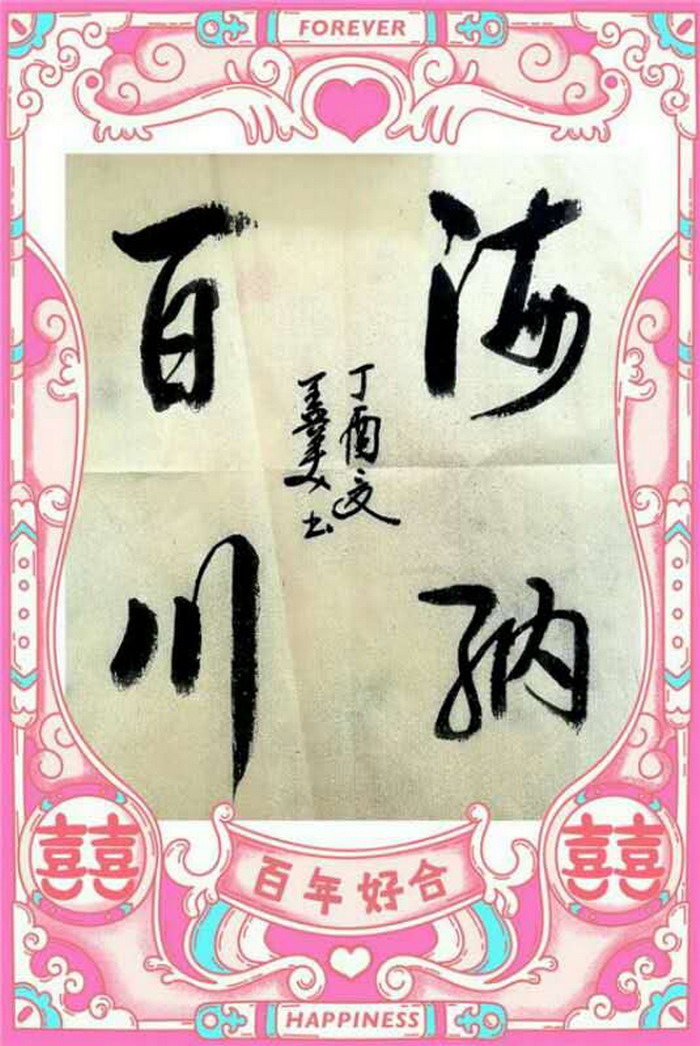 FOREVER
海纳
百川
丁酉夏
书
囍
囍
百年好合
HAPPINESS